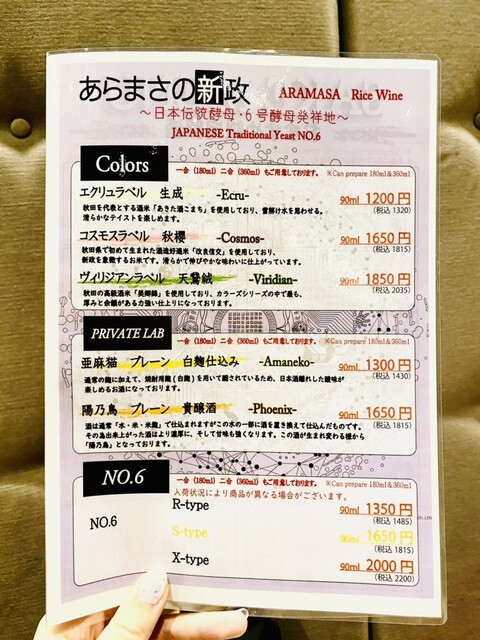 あらまさの新政 ARAMASA Rice Wine
～日本伝統酵母・6号酵母発祥地～
JAPANESE Traditional Yeast NO.6
Colors
一合 (180ml) 二合 (360ml) もご用意しております。 ※Can prepare 180ml＆360ml
エクリュラベル 生成 -Ecru- 90ml 1200円
(税込 1320)
秋田を代表とする酒米「あきた酒こまち」を使用しており、雪解け水を思わせる。
清らかなテイストを楽しめます。
コスモスラベル 秋櫻 -Cosmos- 90ml 1650円
(税込 1815)
秋田県で初めて生まれた酒造好適米「改良信交」を使用しており、
新政を象徴するお米です。清らかで伸びやかな味わいに仕上がっています。
ヴィリジアンラベル 天鵞絨 -Viridian- 90ml 1850円
(税込 2035)
秋田の高級酒米「美郷錦」を使用しており、カラーズシリーズの中で最も、
厚みと余韻がある力強い仕上りになっております。
PRIVATE LAB
一合 (180ml) 二合 (360ml) もご用意しております。 ※Can prepare 180ml＆360ml
亜麻猫 プレーン 白麹仕込み -Amaneko- 90ml 1300円
(税込 1430)
通常の麹に加えて、焼酎用麹(白麹)を用いて醸されているため、日本酒離れした酸味が
楽しめるお酒になっております。
陽乃鳥 プレーン 貴醸酒 -Phoenix- 90ml 1650円
(税込 1815)
酒は通常「水・米・米麹」で仕込まれますがこの水の一部に酒を置き換えて仕込んだものです。
その為出来上がった酒はより濃厚に、そして甘味も強くなります。この酒が生まれ変わる様から
「陽乃鳥」となっております。
NO.6
一合 (180ml) 二合 (360ml) もご用意しております。 ※Can prepare 180ml＆360ml
入荷状況により商品が異なる場合がございます。
NO.6
R-type 90ml 1350円
(税込 1485)
S-type 90ml 1650円
(税込 1815)
X-type 90ml 2000円
(税込 2200)